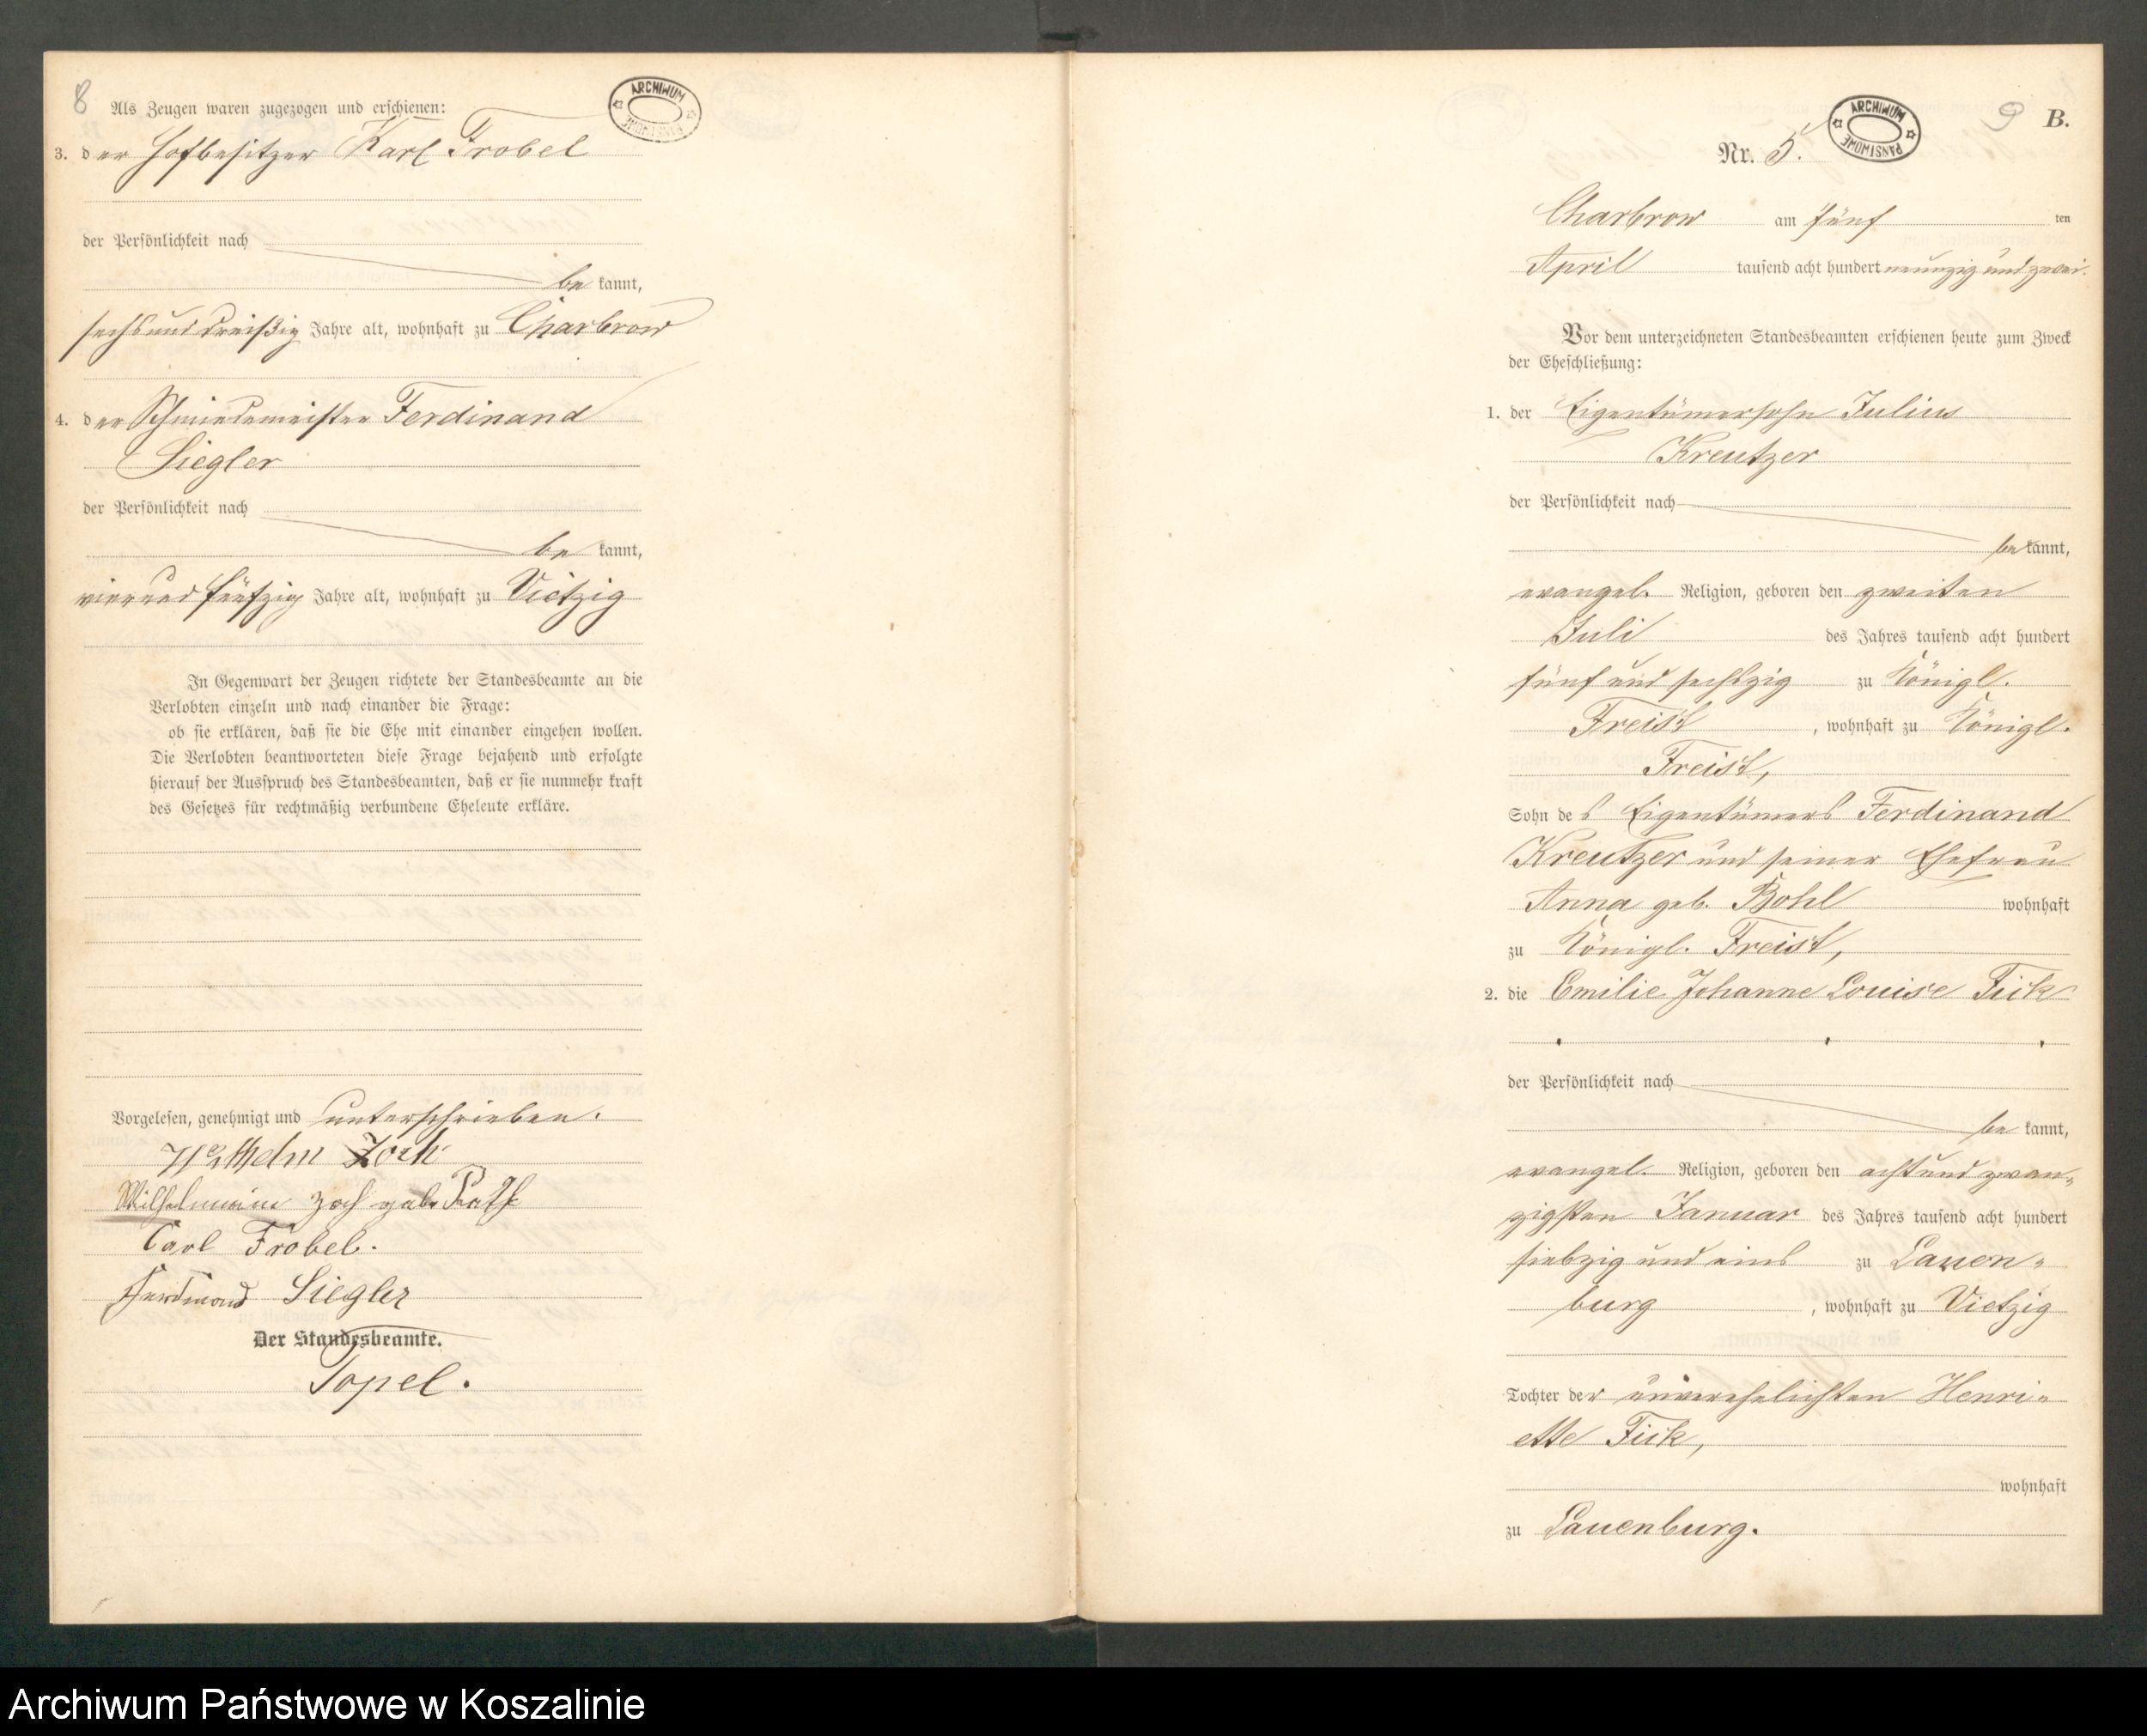 8
Als Zeugen waren zugezogen und erschienen:
ARCHIWUM PAŃSTWOWE
3. der Hofbesitzer Karl Frobel
der Persönlichkeit nach
be kannt,
sechsunddreißig Jahre alt, wohnhaft zu Charbrow
4. der Schmiedemeister Ferdinand
Siegler
der Persönlichkeit nach
be kannt,
vierundfünfzig Jahre alt, wohnhaft zu Vietzig
In Gegenwart der Zeugen richtete der Standesbeamte an die
Verlobten einzeln und nach einander die Frage:
ob sie erklären, daß sie die Ehe mit einander eingehen wollen.
Die Verlobten beantworteten diese Frage bejahend und erfolgte
hierauf der Ausspruch des Standesbeamten, daß er sie nunmehr kraft
des Gesetzes für rechtmäßig verbundene Eheleute erkläre.
Vorgelesen, genehmigt und unterschrieben.
Wilhelm Zoch
Wilhelmine Zoch geb.
Carl Frobel.
Ferdinand Siegler
Der Standesbeamte.
Topel.
9 B.
ARCHIWUM PAŃSTWOWE
Nr. 5.
Charbrow am fünf ten
April tausend acht hundert neunzig und zwei.
Vor dem unterzeichneten Standesbeamten erschienen heute zum Zweck
der Eheschließung:
1. der Eigentümersohn Julius
Kreutzer
der Persönlichkeit nach
be kannt,
evangel. Religion, geboren den zweiten
Juli des Jahres tausend acht hundert
fünf und sechszig zu Königl.
Freist, wohnhaft zu Königl.
Freist,
Sohn des Eigentümers Ferdinand
Kreutzer und seiner Ehefrau
Anna geb. Bohl wohnhaft
zu Königl. Freist,
2. die Emilie Johanne Louise Fick
der Persönlichkeit nach
be kannt,
evangel. Religion, geboren den achtundzwan-
zigsten Januar des Jahres tausend acht hundert
siebzig und eins zu Lauen-
burg, wohnhaft zu Vietzig
Tochter der unverehelichten Henri-
ette Fick,
wohnhaft
zu Lauenburg.
Archiwum Państwowe w Koszalinie